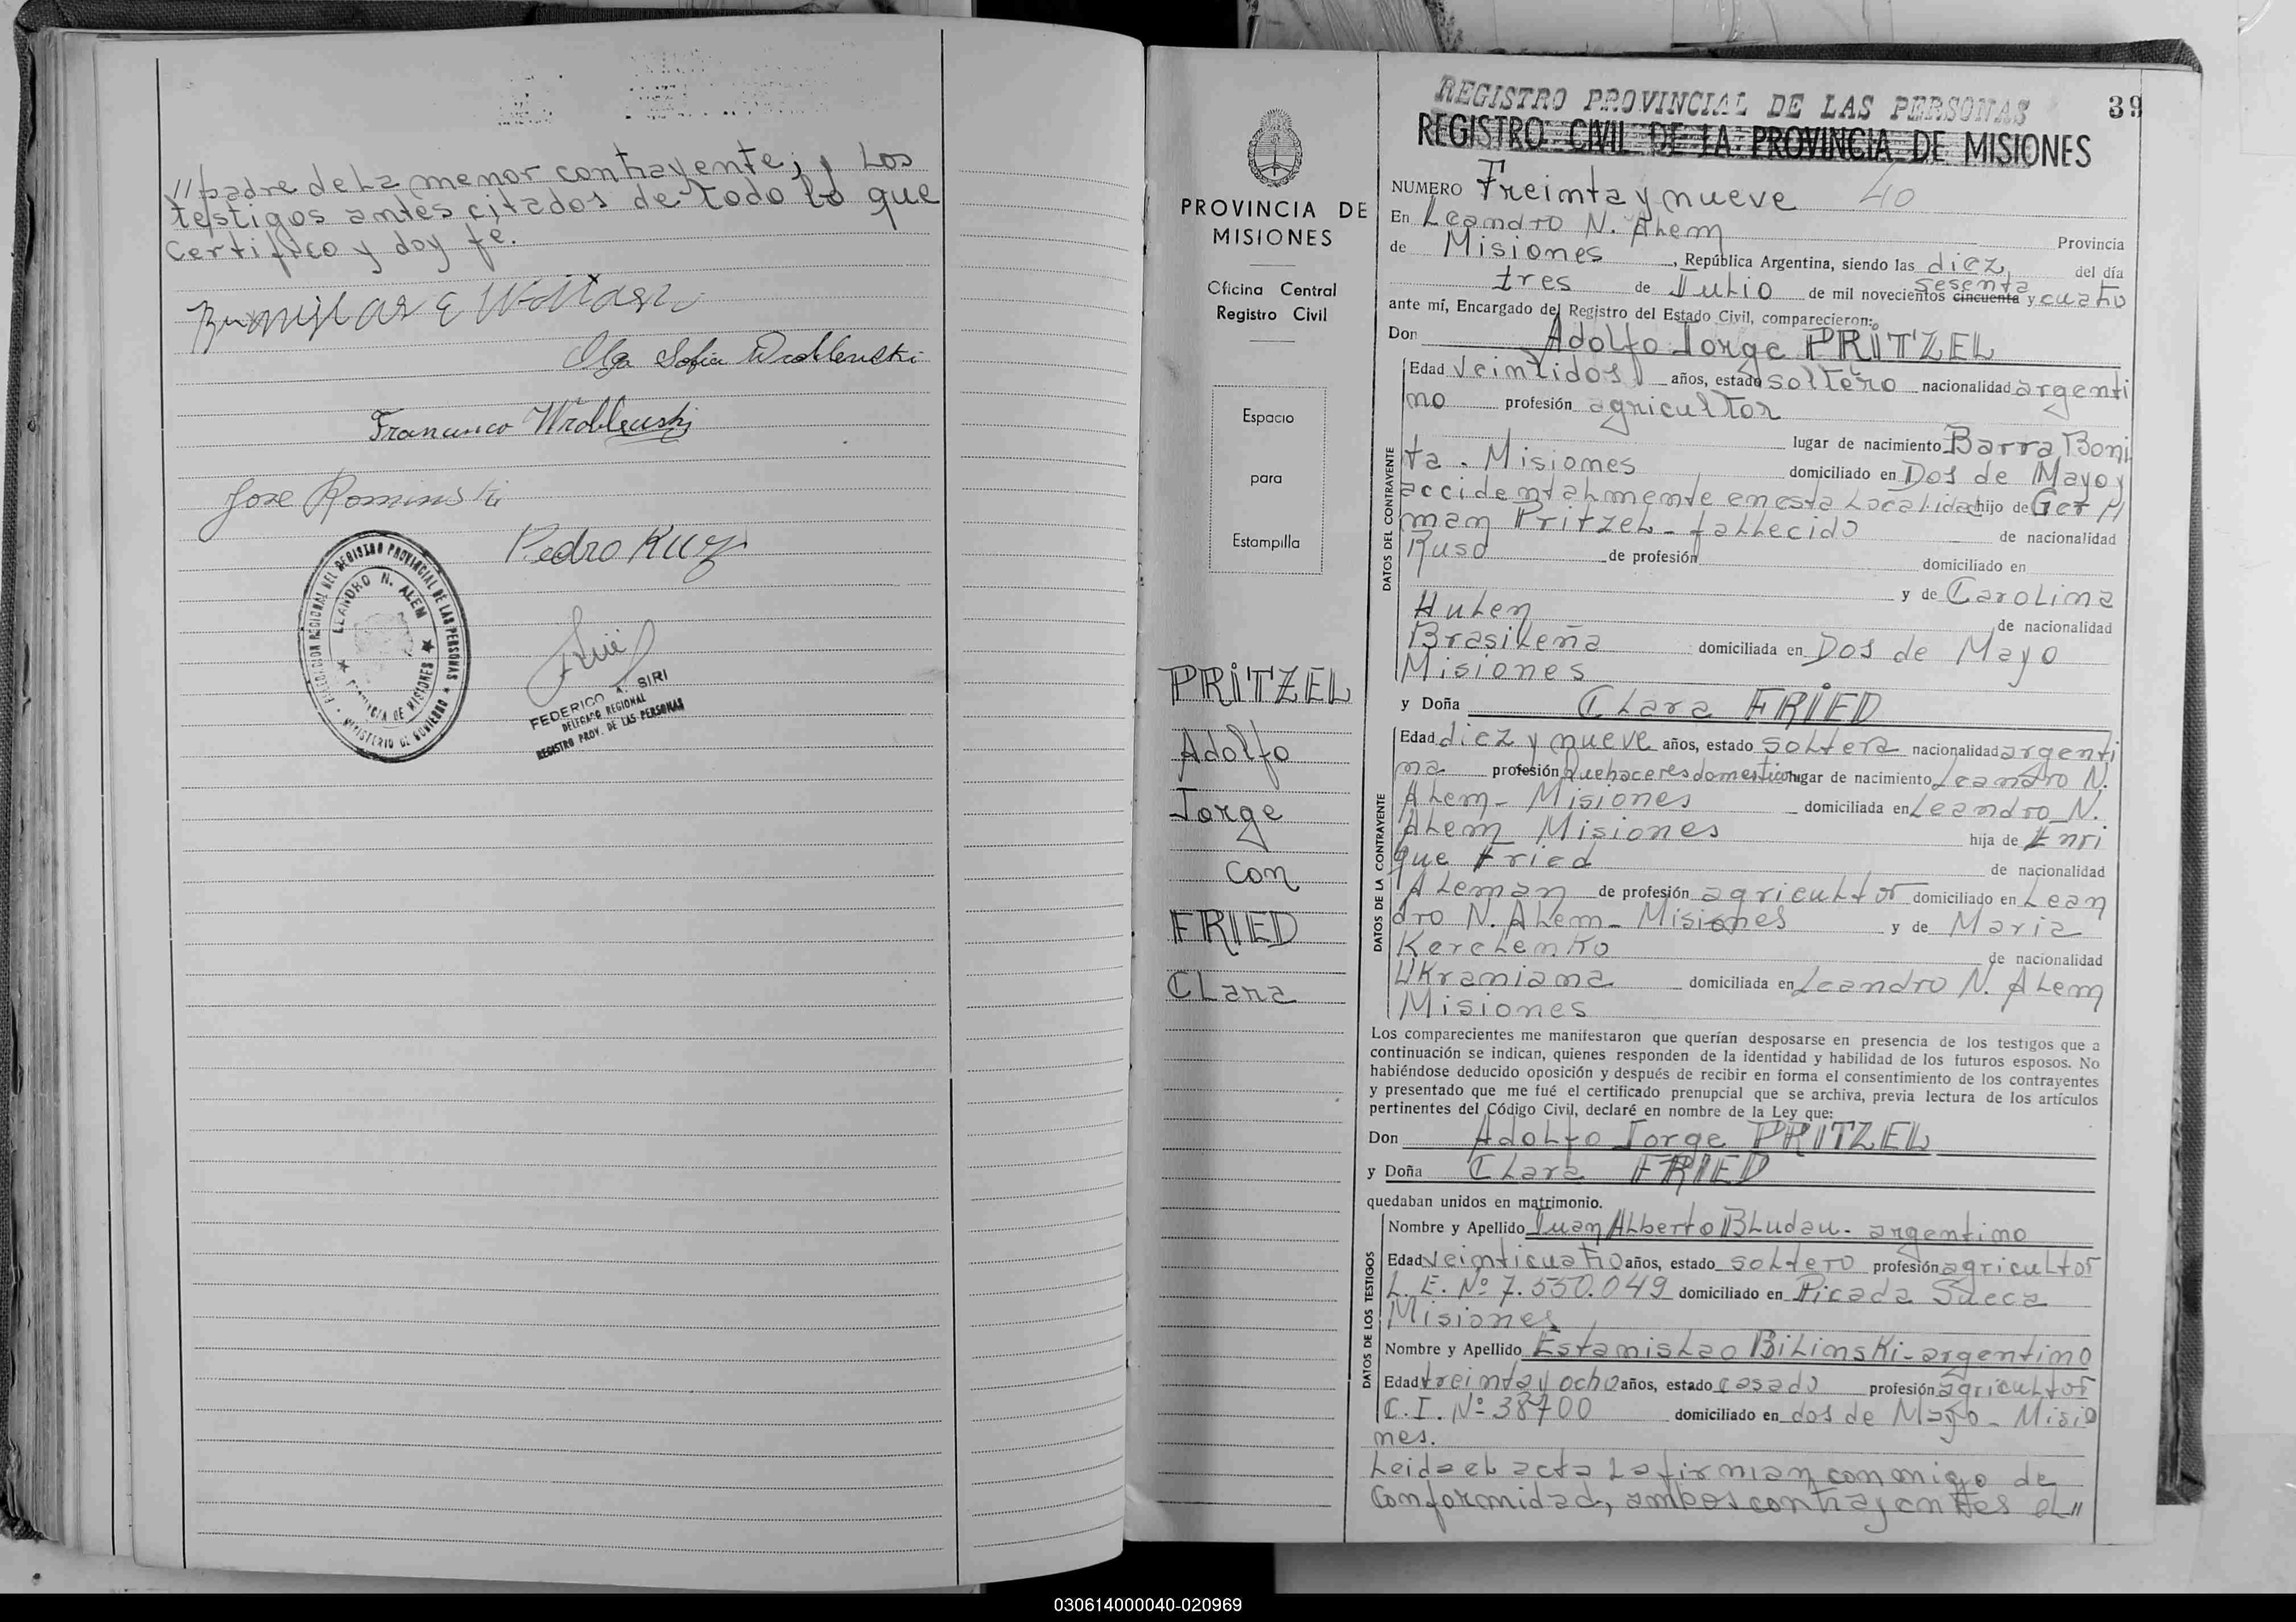 //padre de la menor contrayente; y Los
testigos antes citados de todo lo que
Certifico y doy fe.
Olga Sofia Wroblenski
Francisco Wroblewski
Jose Rominski
Pedro Kuz
DELEGACION REGIONAL DEL REGISTRO PROVINCIAL DE LAS PERSONAS
MINISTERIO DE GOBIERNO
LEANDRO N. ALEM
PROVINCIA DE MISIONES
FEDERICO A. SIRI
DELEGADO REGIONAL
REGISTRO PROV. DE LAS PERSONAS
PROVINCIA DE
MISIONES
Oficina Central
Registro Civil
Espacio
para
Estampilla
PRITZEL
Adolfo
Jorge
con
FRIED
Clara
REGISTRO PROVINCIAL DE LAS PERSONAS
39
REGISTRO CIVIL DE LA PROVINCIA DE MISIONES
NUMERO Treinta y nueve 40
En Leandro N. Alem Provincia
de Misiones, República Argentina, siendo las diez, del día
tres de Julio de mil novecientos cincuenta sesenta y cuatro
ante mí, Encargado del Registro del Estado Civil, comparecieron:
Don Adolfo Jorge PRITZEL
DATOS DEL CONTRAYENTE
Edad veintidos años, estado soltero nacionalidad argenti
no profesión agricultor
lugar de nacimiento Barra Boni
ta. Misiones domiciliado en Dos de Mayo y
accidentalmente en esta Localidad hijo de Ger
man Pritzel - fallecido de nacionalidad
Ruso de profesión domiciliado en
y de Carolina
Hulen de nacionalidad
Brasileña domiciliada en Dos de Mayo
Misiones
y Doña Clara FRIED
DATOS DE LA CONTRAYENTE
Edad diez y nueve años, estado soltera nacionalidad argenti
na profesión Quehaceres domestico lugar de nacimiento Leandro N.
Alem - Misiones domiciliada en Leandro N.
Alem Misiones hija de Enri
que Fried de nacionalidad
Aleman de profesión agricultor domiciliado en Lean
dro N. Alem - Misiones y de Maria
Kerchenko de nacionalidad
Ukraniana domiciliada en Leandro N. Alem
Misiones
Los comparecientes me manifestaron que querían desposarse en presencia de los testigos que a
continuación se indican, quienes responden de la identidad y habilidad de los futuros esposos. No
habiéndose deducido oposición y después de recibir en forma el consentimiento de los contrayentes
y presentado que me fué el certificado prenupcial que se archiva, previa lectura de los artículos
pertinentes del Código Civil, declaré en nombre de la Ley que:
Don Adolfo Jorge PRITZEL
y Doña Clara FRIED
quedaban unidos en matrimonio.
DATOS DE LOS TESTIGOS
Nombre y Apellido Juan Alberto Bludau - argentino
Edad veinticuatro años, estado soltero profesión agricultor
L. E. Nº 7.550.049 domiciliado en Picada Sueca
Misiones
Nombre y Apellido Estanislao Bilinski - argentino
Edad treinta y ocho años, estado casado profesión agricultor
C. I. Nº 38700 domiciliado en dos de Mayo - Misio
nes.
Leida el acta La firman conmigo de
Conformidad, ambos contrayentes el//
030614000040-020969